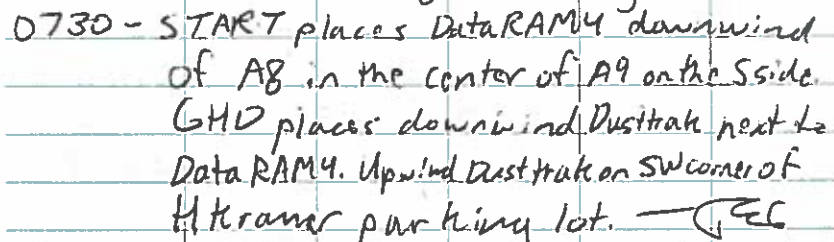 0730 - START places DataRAM4 downwind
of A8 in the center of A9 on the S side.
GHD places downwind Dusttrak next to
DataRAM4. Upwind Dusttrak on SW corner of
H Kramer parking lot.